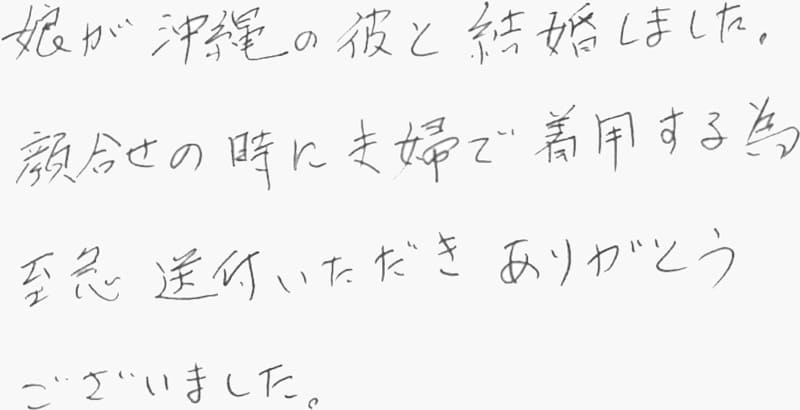 娘が沖縄の彼と結婚しました。
顔合せの時に夫婦で着用する為
至急送付いただきありがとう
ございました。